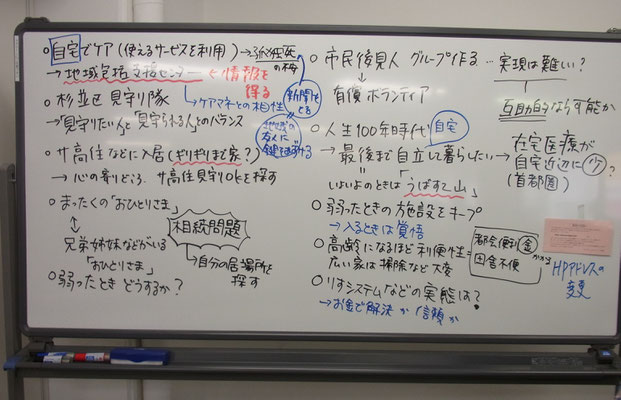 ○自宅でケア(使えるサービスを利用)→孤独死の
→地域包括支援センター ← 情報を得る
→ケアマネとの相性
新聞をとる
○杉並区 見守り隊
→「見守りたい人」と「見守られる人」とのバランス
地域の友人に鍵を預ける
○サ高住などに入居(ぎりぎりまで家?)
→心の寄りどころ、サ高住見守りOKを探す
○まったくの「おひとりさま」
↕
兄弟姉妹などがいる「おひとりさま」
相続問題
→自分の居場所を探す
○弱ったときどうするか?
○市民後見人 グループ作る…実現は難しい?
↓
有償ボランティア
互助的ならす能か
○人生100年時代 自宅
→最後まで自立して暮らしたい → 在宅医療が自宅近辺に少?(首都圏)
いよいよのときは「うばすて山」
○弱ったときの施設をキープ
→入るときは覚悟
○高齢になるほど利便性=都会便利 金かかる
田舎不便
広い家は掃除など大変
○りすシステムなどの実態は?
→お金で解決か 信頼か
HPアドレスの変更